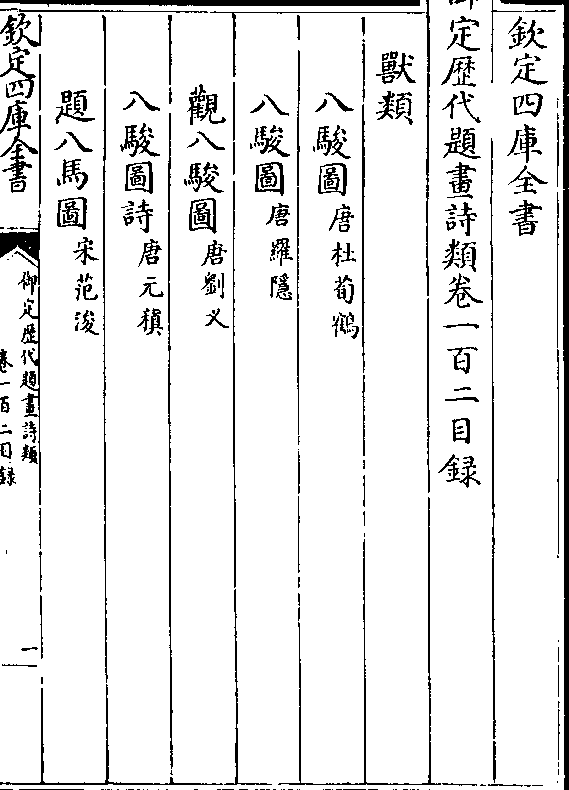 欽定四庫全書
御定歴代題畫詩類卷一百二目録
獸類
八駿圖唐杜荀鶴
八駿圖唐羅隱
觀八駿圖唐劉乂
八駿圖詩唐元稹
題八馬圖宋范浚
欽定四庫全書
御定歴代題畫詩類
卷一百二目録
一